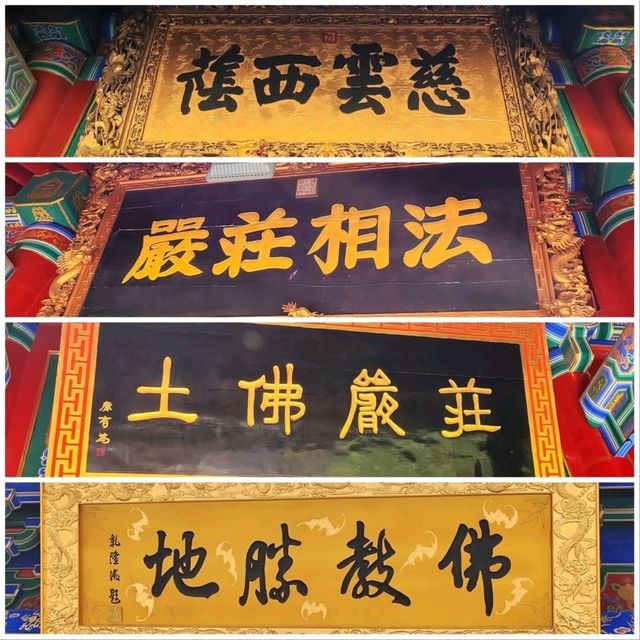 慈雲西蔭
法相莊嚴
莊嚴佛土
康有為
佛教勝地
乾隆御題